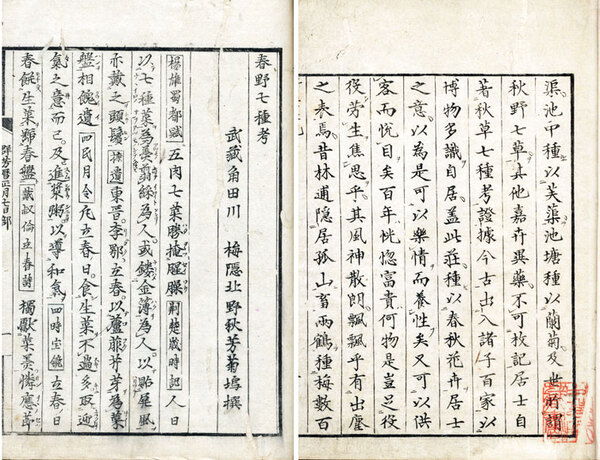 渠池中種以芙蕖池塘種以蘭菊及世所謂
秋野七草其他嘉卉異藥不可枚記居士自
著秋草七種考證據今古出入諸子百家以
博物多識自居蓋此莊種以春秋花卉居士
之意以為是可以樂情而養性矣又可以供
客而悅目矣百年恍惚富貴何物是豈足役
役勞生焦思乎其風神散朗飄飄乎有出塵
之表焉昔林逋隱居孤山畜兩鶴種梅數百
春野七種考
武藏角田川 梅隱北野秋芳菊塢撰
揚雄蜀都賦 五肉七菜朦腥臊 荊楚歲時記 人日
以七種菜為羹剪綵為人或鏤金薄為人以貼屏風
亦戴之頭鬢 摭遺 東晉李鄂立春以蘆菔芹芽為菜
盤相餽遺 四民月令 凡立春日食生菜不過多取迎
之意而已及進漿粥以導和氣 四時宝鏡 立春日
春餅生菜號春盤 戴叔倫立春詩 獨獻菜羹憐應節